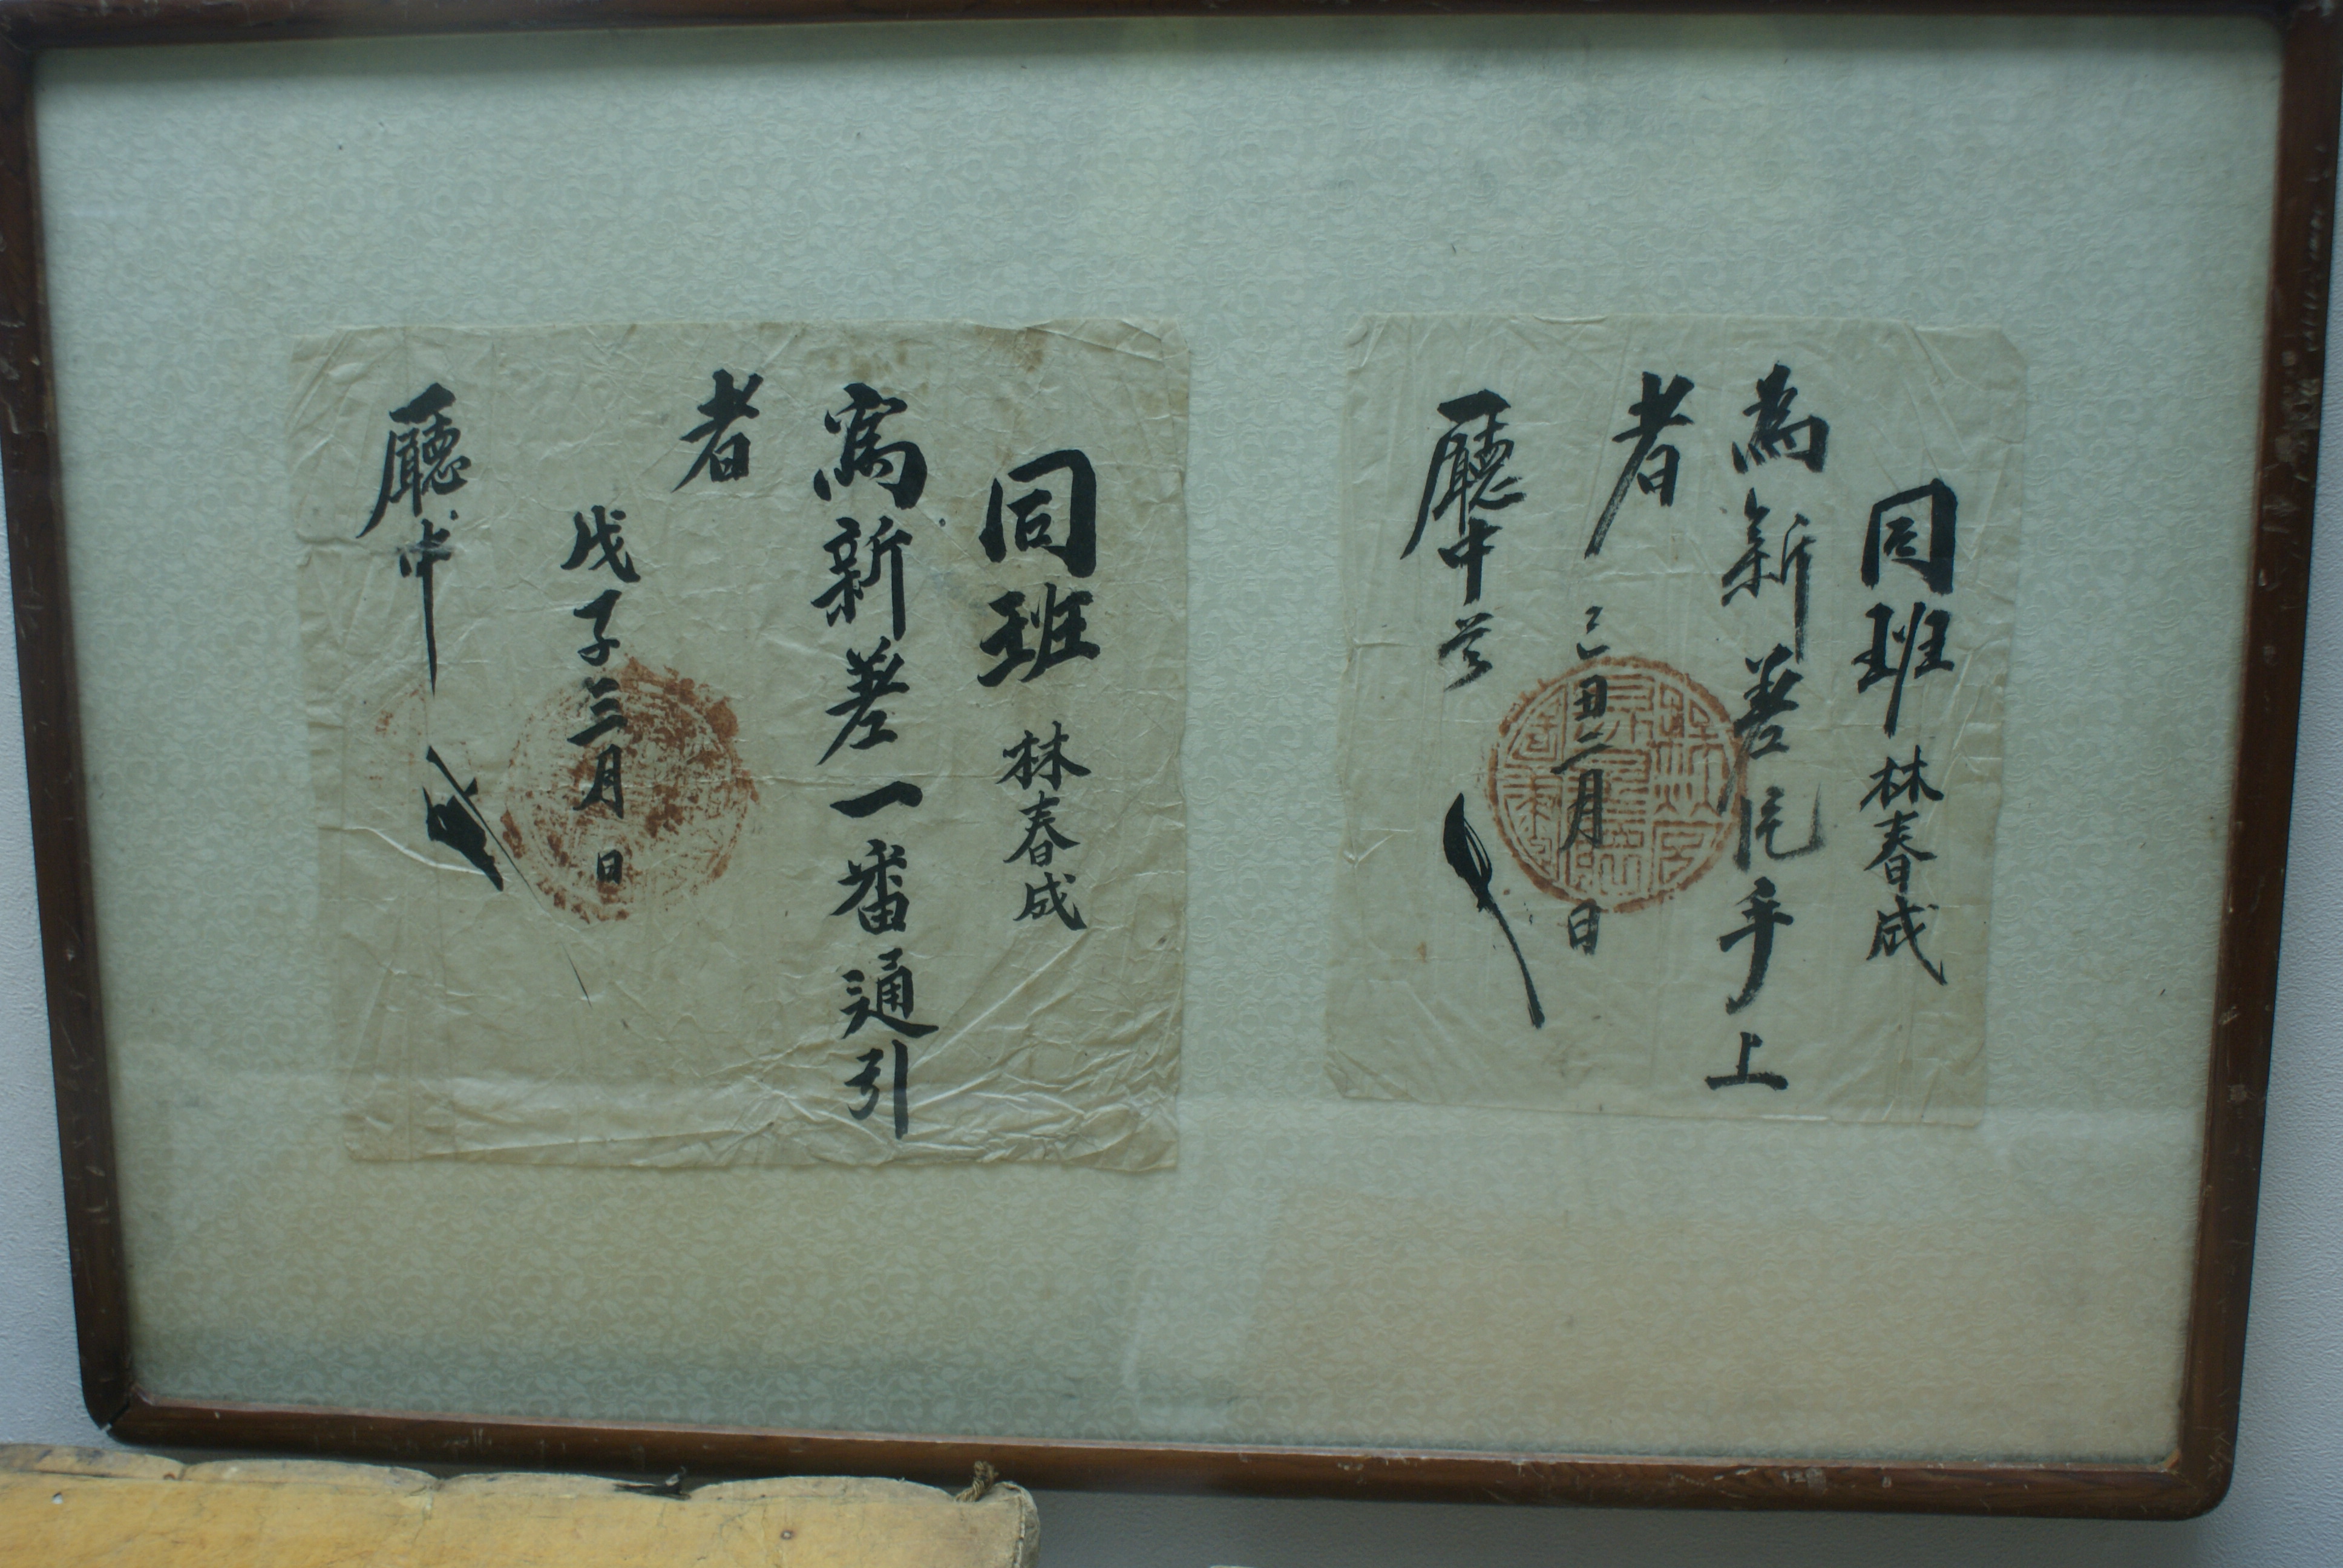 同班 林春成
為新差𠬠手上
者
己丑二月 日
廳中
同班 林春成
寫新差一番通引
者
戊子三月 日
廳中